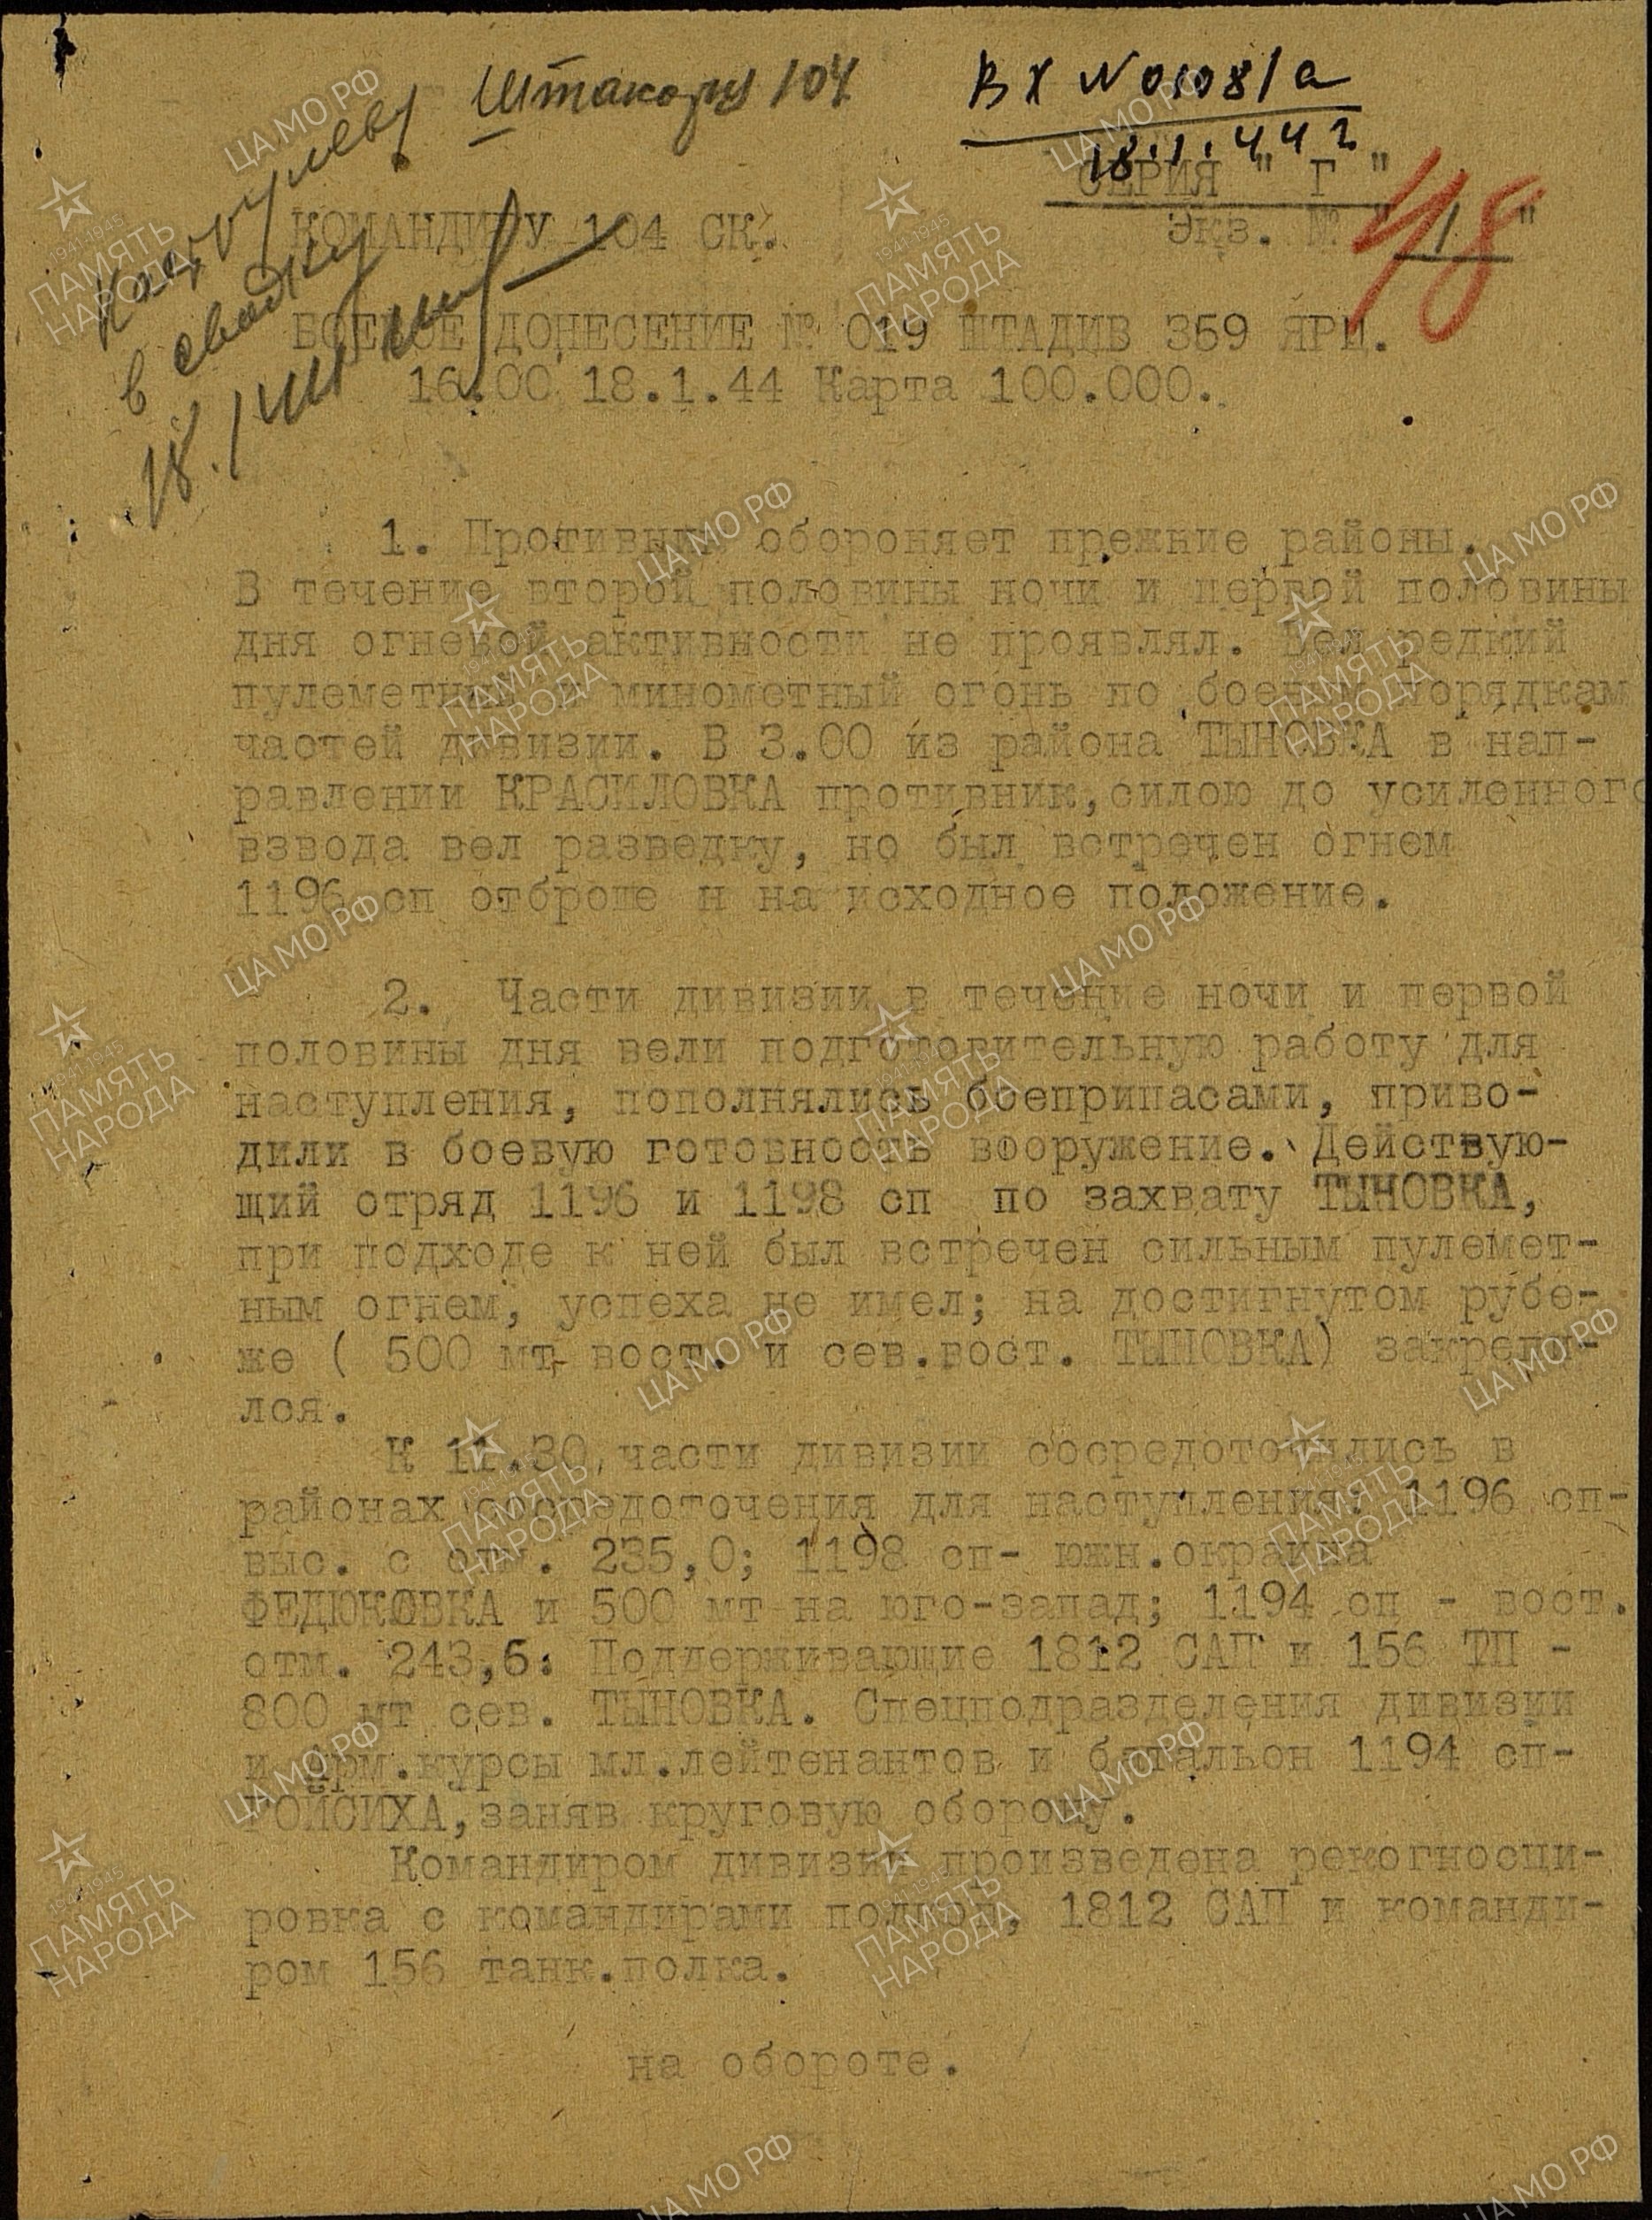 Штакору 104
Вх N 01081а
18.1.44 г
СЕРИЯ " Г "
КОМАНДИРУ 104 СК.
Экз. № " 1 "
48
в сводку
18.1
БОЕВОЕ ДОНЕСЕНИЕ № 019 ШТАДИВ 359 ЯРЦ.
16.00 18.1.44 Карта 100.000.
1. Противник обороняет прежние районы.
В течение второй половины ночи и первой половины
дня огневой активности не проявлял. Вел редкий
пулеметный и минометный огонь по боевым порядкам
частей дивизии. В 3.00 из района ТЫНОВКА в нап-
равлении КРАСИЛОВКА противник, силою до усиленного
взвода вел разведку, но был встречен огнем
1196 сп отброше н на исходное положение.
2. Части дивизии в течение ночи и первой
половины дня вели подготовительную работу для
наступления, пополнялись боеприпасами, приво-
дили в боевую готовность вооружение. Действую-
щий отряд 1196 и 1198 сп по захвату ТЫНОВКА,
при подходе к ней был встречен сильным пулемет-
ным огнем, успеха не имел; на достигнутом рубе-
же ( 500 мт вост. и сев.вост. ТЫНОВКА) закрепи-
лся.
К 11.30 части дивизии сосредоточились в
районах сосредоточения для наступления: 1196 сп-
выс. с отм. 235,0; 1198 сп- южн.окраина
ФЕДЮКОВКА и 500 мт на юго-запад; 1194 сп - вост.
отм. 243,6. Поддерживающие 1812 САП и 156 ТП -
800 мт сев. ТЫНОВКА. Спецподразделения дивизии
и Арм.курсы мл.лейтенантов и батальон 1194 сп-
РОЙСИХА, заняв круговую оборону.
Командиром дивизии произведена рекогносци-
ровка с командирами полков, 1812 САП и команди-
ром 156 танк.полка.
на обороте.
ЦА МО РФ
1941-1945
ПАМЯТЬ
НАРОДА